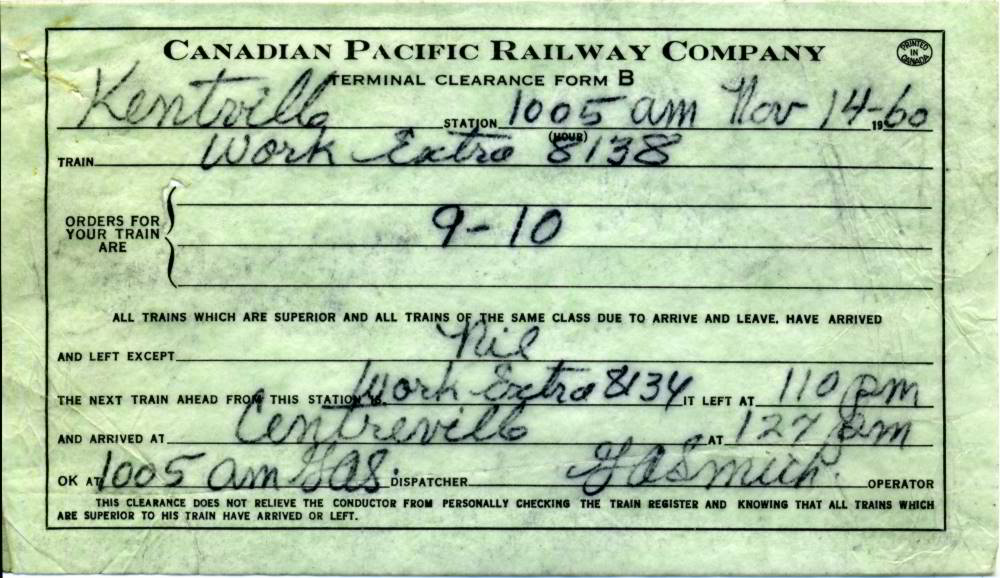 CANADIAN PACIFIC RAILWAY COMPANY
PRINTED IN CANADA
TERMINAL CLEARANCE FORM B
Kentville STATION 1005 am Nov 14 - 1960
(HOUR)
TRAIN Work Extra 8138
ORDERS FOR
YOUR TRAIN
ARE
9-10
ALL TRAINS WHICH ARE SUPERIOR AND ALL TRAINS OF THE SAME CLASS DUE TO ARRIVE AND LEAVE, HAVE ARRIVED
AND LEFT EXCEPT Nil
THE NEXT TRAIN AHEAD FROM THIS STATION IS Work Extra 8134 IT LEFT AT 110 pm
AND ARRIVED AT Centreville AT 127 pm
OK AT 1005 am GAS. DISPATCHER OPERATOR
THIS CLEARANCE DOES NOT RELIEVE THE CONDUCTOR FROM PERSONALLY CHECKING THE TRAIN REGISTER AND KNOWING THAT ALL TRAINS WHICH
ARE SUPERIOR TO HIS TRAIN HAVE ARRIVED OR LEFT.